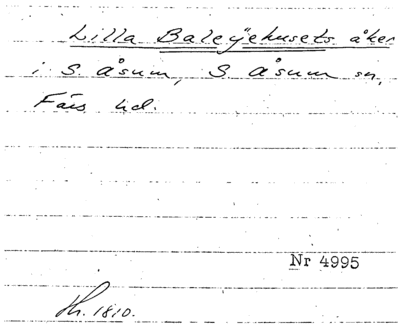 Lilla Baleýehusets åker
i S. Åsum, S. Åsum sn,
Färs hd.
Nr 4995
Hr. 1810.